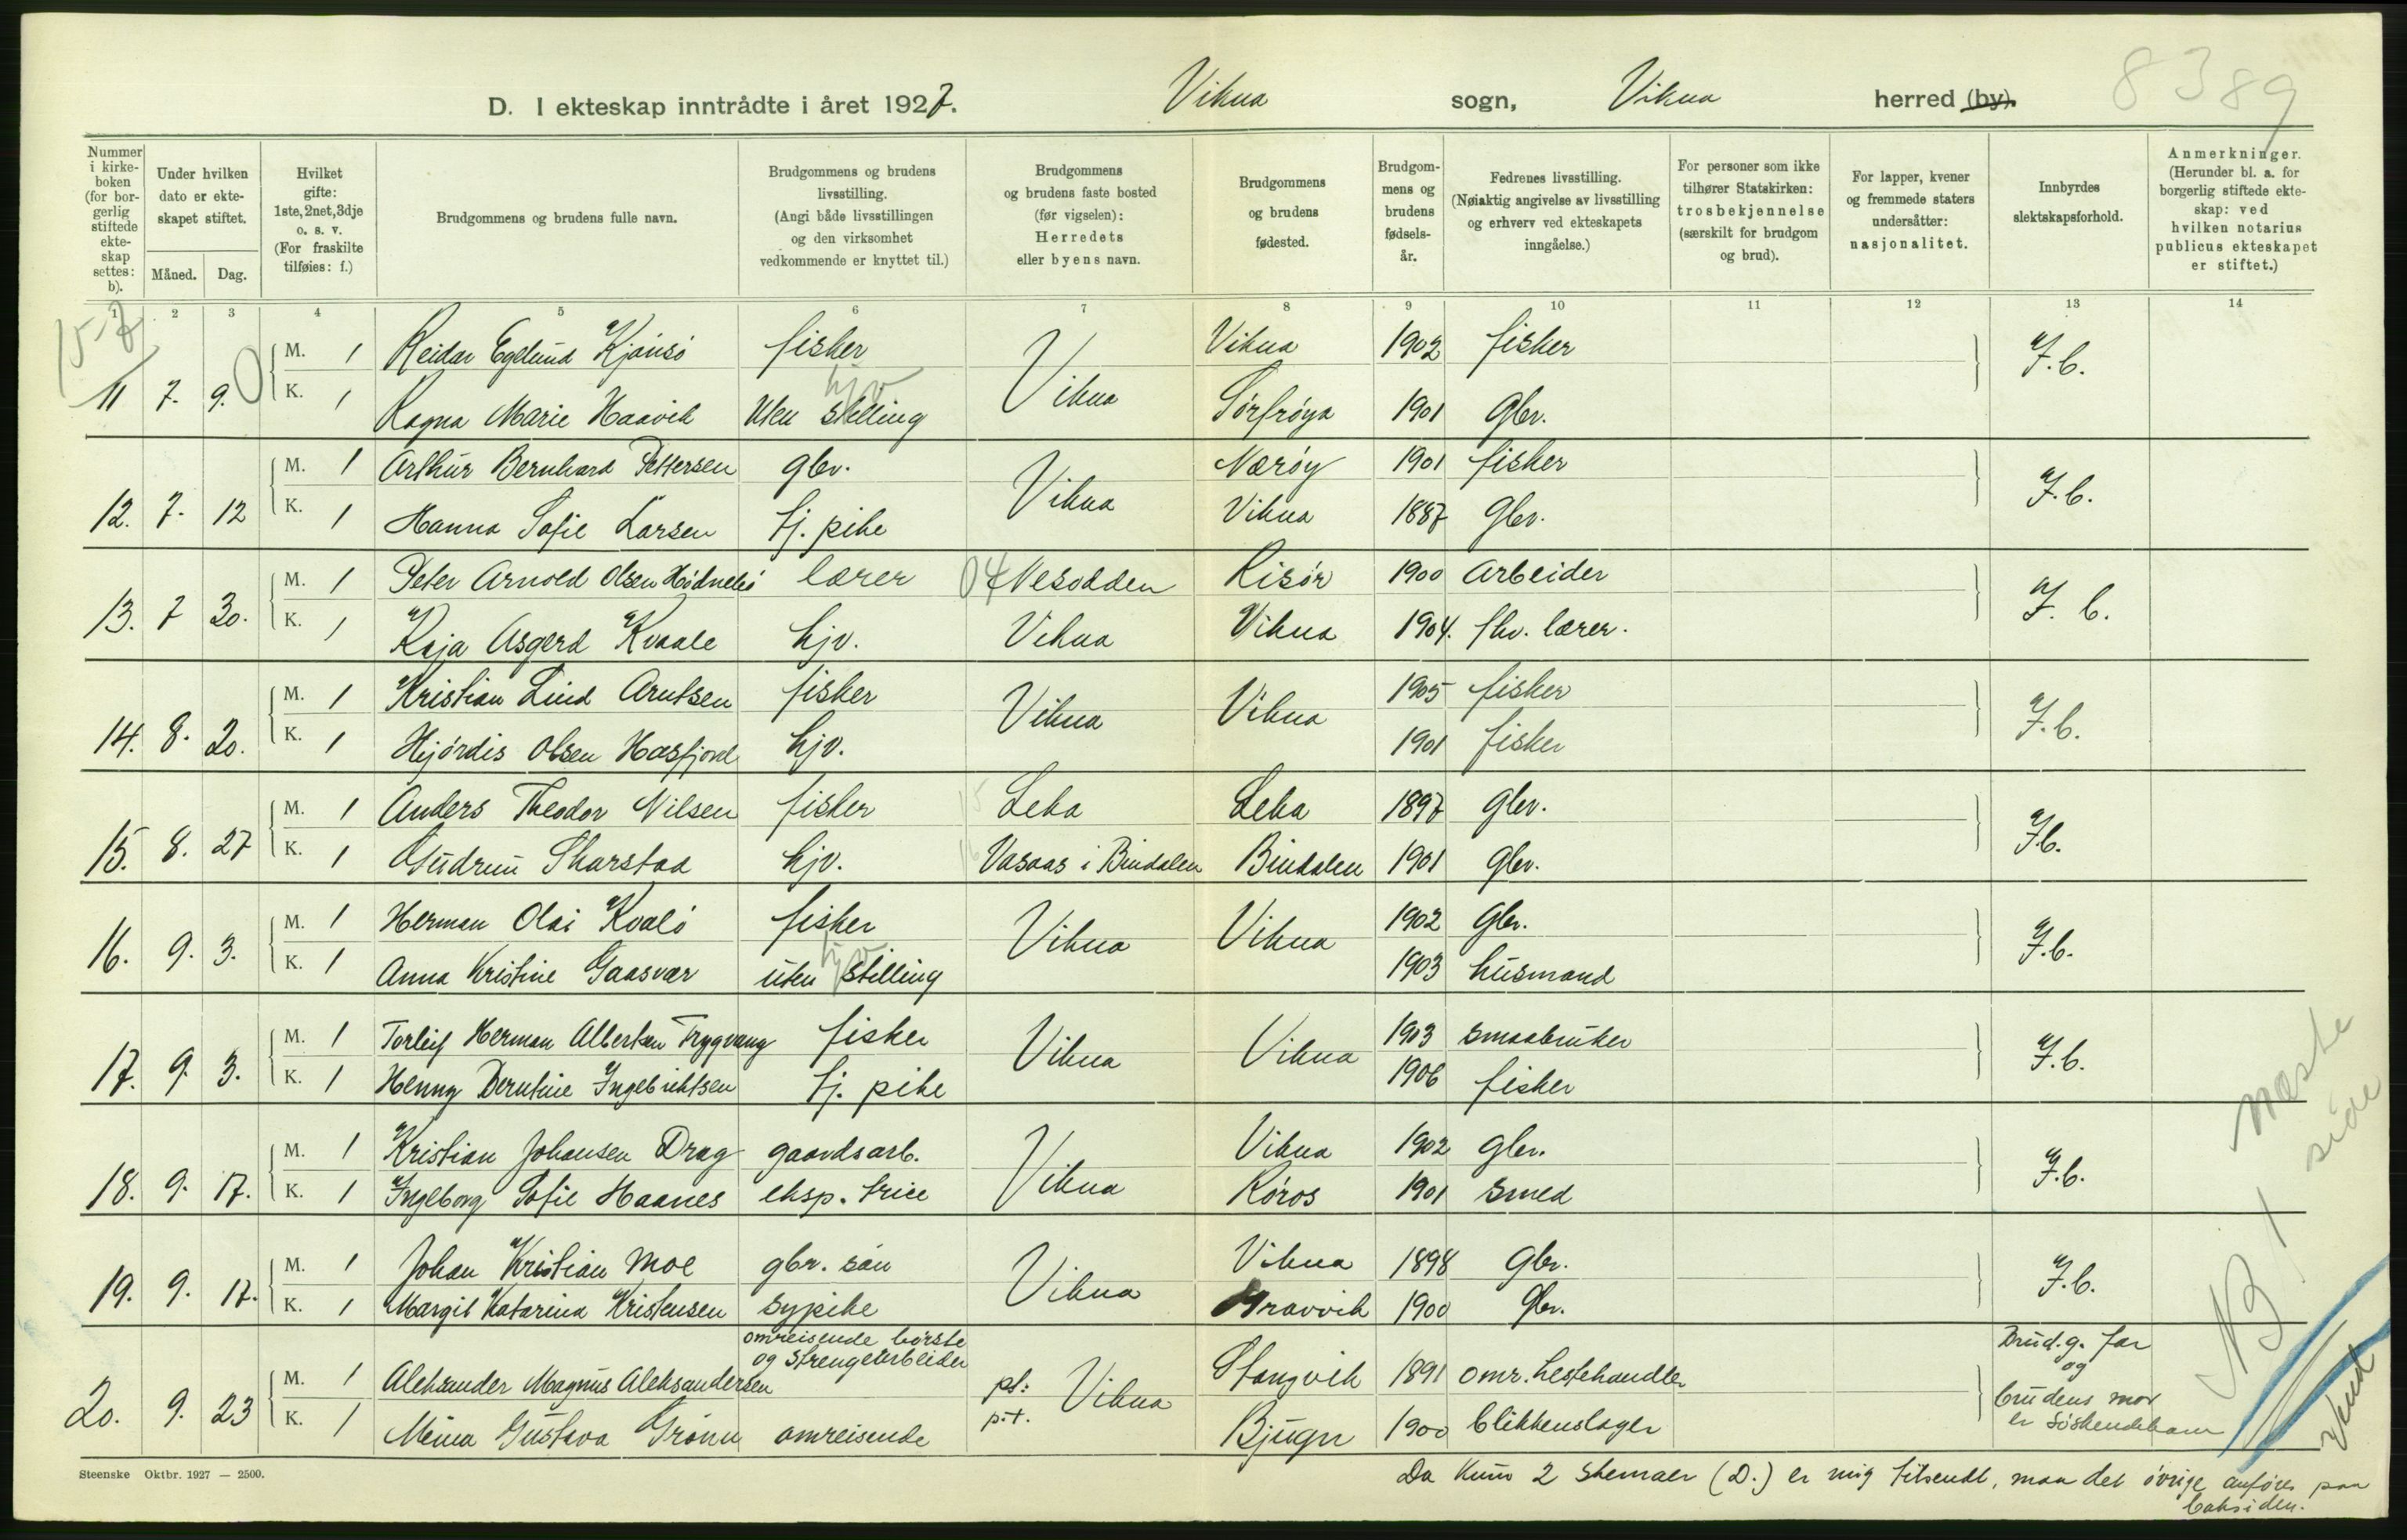 8389
D. I ekteskap inntrådte i året 1927. Vikna sogn, Vikna herred (by).
Nummer i kirkeboken (for borgerlig stiftede ekteskap settes: b).
Under hvilken dato er ekteskapet stiftet.
Måned. Dag.
Hvilket gifte: 1ste, 2net, 3dje o. s. v. (For fraskilte tilføies: f.)
Brudgommens og brudens fulle navn.
Brudgommens og brudens livsstilling. (Angi både livsstillingen og den virksomhet vedkommende er knyttet til.)
Brudgommens og brudens faste bosted (før vigselen): Herredets eller byens navn.
Brudgommens og brudens fødested.
Brudgommens og brudens fødselsår.
Fedrenes livsstilling. (Nøiaktig angivelse av livsstilling og erhverv ved ekteskapets inngåelse.)
For personer som ikke tilhører Statskirken: trosbekjennelse (særskilt for brudgom og brud).
For lapper, kvener og fremmede staters undersåtter: nasjonalitet.
Innbyrdes slektskapsforhold.
Anmerkninger. (Herunder bl. a. for borgerlig stiftede ekteskap: ved hvilken notarius publicus ekteskapet er stiftet.)
1 2 3 4 5 6 7 8 9 10 11 12 13 14
15-7
11 7. 9. M. 1 Reidar Egelund Kjønsø fisker Vikna Vikna 1902 fisker I.b.
K. 1 Ragna Marie Haavik Uten stilling hjv Sørfrøya 1901 Gbr.
12. 7. 12 M. 1 Arthur Bernhard Pettersen gbr. Vikna Nærøy 1901 fisker I.b.
K. 1 Hanna Sofie Larsen tj. pike Vikna 1887 Gbr.
13. 7 30. M. 1 Peter Arnold Olsen Hødnebø lærer 04 Nesodden Risør 1900 Arbeider I. b.
K. 1 Kaja Asgerd Kvaale hjv. Vikna Vikna 1904. fhv. lærer.
14. 8. 20. M. 1 Kristian Lind Arntsen fisker Vikna Vikna 1905 fisker I.b.
K. 1 Hjørdis Olsen Hasfjord hjv. 1901 fisker
15. 8. 27 M. 1 Anders Theodor Nilsen fisker Leka Leka 1897 Gbr. I.b.
K. 1 Gudrun Skarstad hjv. Vasaas i Bindalen Bindalen 1901 Gbr.
16. 9. 3. M. 1 Herman Olai Kvalø fisker Vikna Vikna 1902 Gbr. I.b.
K. 1 Anna Kristine Gaasvær uten stilling hjv 1903 husmand
17. 9. 3. M. 1 Torleif Herman Albertsen Trygvang fisker Vikna Vikna 1903 smaabruker I.b.
K. 1 Henny Berntine Ingebriktsen tj. pike 1906 fisker
18. 9. 17. M. 1 Kristian Johansen Drag gaardsarb. Vikna Vikna 1902 gbr. I.b.
K. 1 Ingeborg Sofie Haanes eksp. trice Røros 1901 smed
19. 9. 17. M. 1 Johan Kristian Moe gbr. søn Vikna Vikna 1898 Gbr. I.b.
K. 1 Margit Katarina Kristensen sypike Gravvik 1900 Gbr.
omreisende børste
og strengearbeider
20. 9. 23 M. 1 Aleksander Magnus Aleksandersen pt: Vikna Stangvik 1891 omr. hestehandler Brud.g. far
og
K. 1 Mina Gustava Grønn omreisende p.t. Bjugn 1900 blikkenslager brudens mor
er søskendebarn
næste side
NB!
Vend
Steenske Oktbr. 1927 — 2500.
Da kun 2 skemaer (D.) er mig tilsendt, maa det øvrige anføres paa
baksiden.